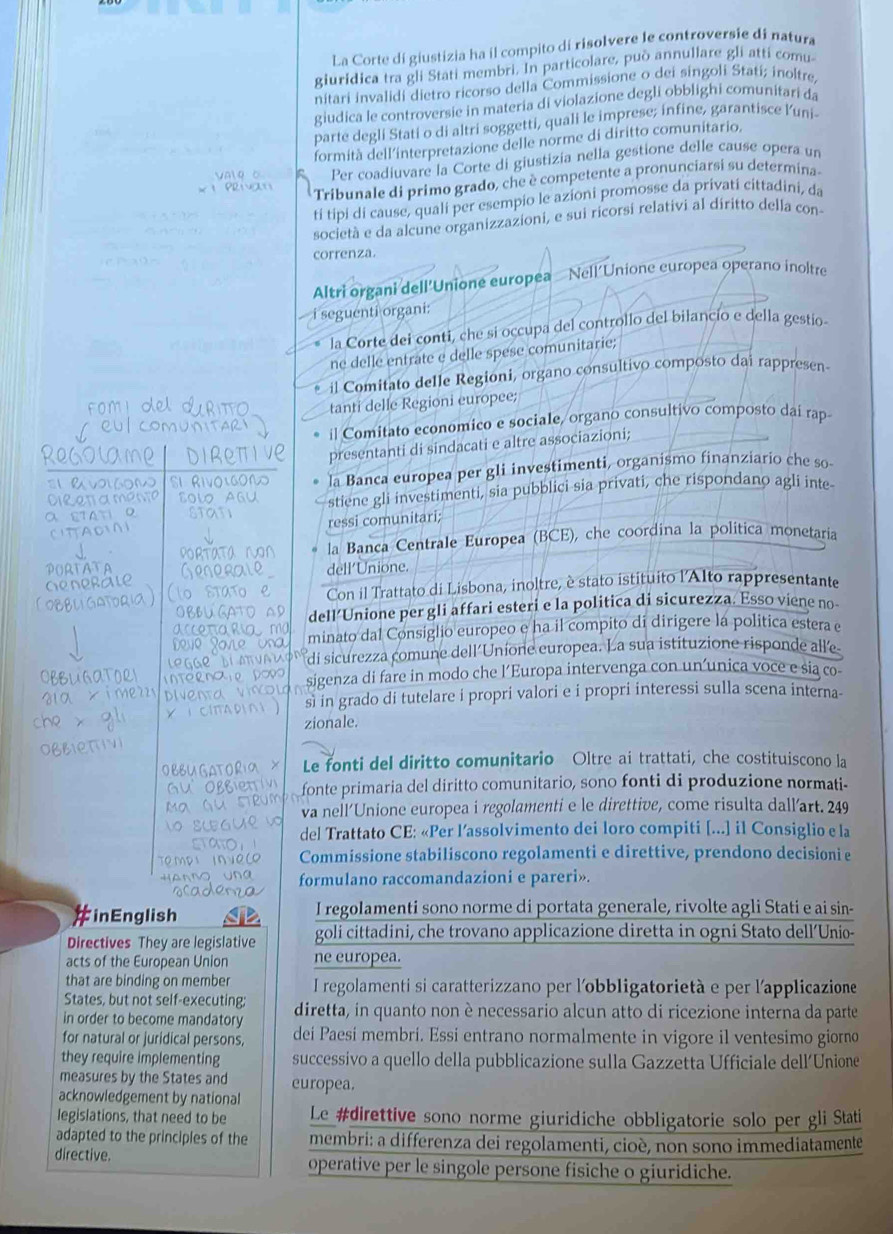 La Corte di giustizia ha il compito di risolvere le controversie di natura
giuridica tra gli Stati membri. In particolare, può annullare gli atti comu-
nitari invalidi dietro ricorso della Commissione o dei singoli Stati; inoltre,
giudica le controversie in materia di violazione degli obblighi comunitari da
parte degli Stati o di altri soggetti, quali le imprese; infine, garantisce l'uni-
formità dell'interpretazione delle norme di diritto comunitario.
Per coadiuvare la Corte di giustizia nella gestione delle cause opera un
Tribunale di primo grado, che è competente a pronunciarsi su determina-
ti tipi di cause, quali per esempio le azioni promosse da privati cittadini, da
società e da alcune organizzazioni, e sui ricorsi relativi al diritto della con-
correnza.
Altri organi dell'Unione europea Nell'Unione europea operano inoltre
i seguenti organi:
• la Corte dei conti, che si occupa del controllo del bilancio e della gestio-
ne delle entrate e delle spese comunitarie;
• il Comitato delle Regioni, organo consultivo composto dai rappresen-
tanti delle Regioni europee;
• il Comitato economico e sociale, organo consultivo composto dai rap-
presentanti di sindacati e altre associazioni;
• la Banca europea per gli investimenti, organismo finanziario che so-
stiene gli investimenti, sia pubblici sia privati, che rispondano agli inte-
ressi comunitari;
• la Banca Centrale Europea (BCE), che coordina la politica monetaria
dell'Unione.
Con il Trattato di Lisbona, inoltre, è stato istituito l'Alto rappresentante
dell'Unione per gli affari esteri e la politica di sicurezza. Esso viene no-
minato dal Consiglio europeo e ha il compito di dirigere la politica estera e
di sicurezza comune dell'Unione europea. La sua istituzione risponde all'e-
sigenza di fare in modo che l'Europa intervenga con un'unica voce e sia co-
sì in grado di tutelare i propri valori e i propri interessi sulla scena interna-
zionale.
Le fonti del diritto comunitario Oltre ai trattati, che costituiscono la
fonte primaria del diritto comunitario, sono fonti di produzione normati-
va nell'Unione europea i regolamenti e le direttive, come risulta dall'art. 249
del Trattato CE: «Per l'assolvimento dei loro compiti [...] il Consiglio e la
Commissione stabiliscono regolamenti e direttive, prendono decisioni e
formulano raccomandazioni e pareri».
I regolamenti sono norme di portata generale, rivolte agli Stati e ai sin-
goli cittadini, che trovano applicazione diretta in ogni Stato dell'Unio-
ne europea.
I regolamenti si caratterizzano per l'obbligatorietà e per l'applicazione
diretta, in quanto non è necessario alcun atto di ricezione interna da parte
dei Paesi membri. Essi entrano normalmente in vigore il ventesimo giorno
successivo a quello della pubblicazione sulla Gazzetta Ufficiale dell'Unione
europea.
Le #direttive sono norme giuridiche obbligatorie solo per gli Stati
membri: a differenza dei regolamenti, cioè, non sono immediatamente
operative per le singole persone fisiche o giuridiche.
x i PRIVATI
DIRITTO
COMUNITARI
DIRETTIVE
SI RIVOLGONO
DIRETTAMENTE
a STATI e
CITTADINI
PORTATA
GENERALE
(OBBLIGATORIA)
OBBLIGATORI
sia x i mezzi
che x gli
OBBIETTIVI
SI RIVOLGONO
SOLO AGLI
STATI
PORTATA NON
GENERALE
(lo STATO e
OBBLIGATO AD
accettarla ma
Deve fare una
LEGGE DI ATTUAZIONE
INTERNA e poi
DIVENTA
x i CITTADINI)
OBBLIGATORIA x
GLI OBBIETTIVI
Ma GLI STRUMENTI
lo SCEGLIE lo
STATO, i
TEMPI INVECE
HANNO una
scadenza
#inEnglish
Directives They are legislative
acts of the European Union
that are binding on member
States, but not self-executing;
in order to become mandatory
for natural or juridical persons,
they require implementing
measures by the States and
acknowledgement by national
legislations, that need to be
adapted to the principles of the
directive.